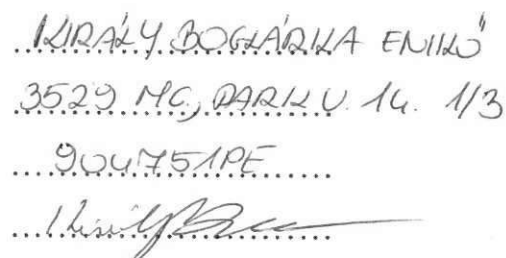 KIRÁLY BOGLÁRKA ENIKŐ
3529 MC, PARK U. 14. 1/3
904751PE